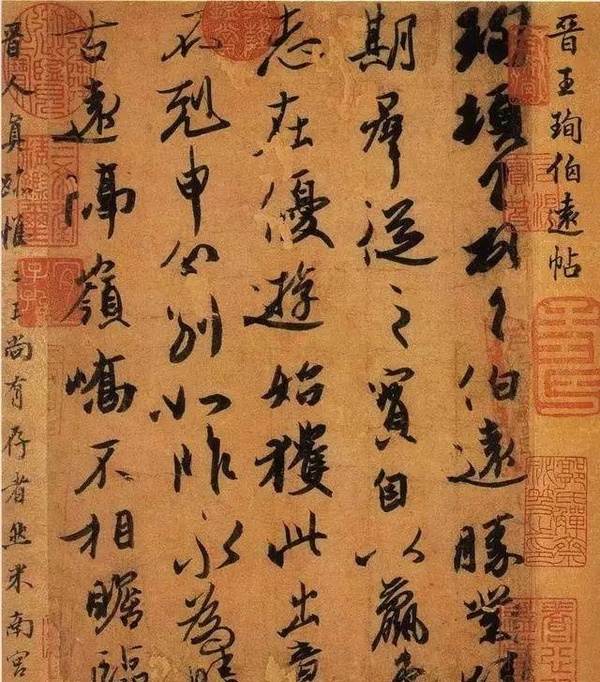 晉王珣伯遠帖
珣頓首頓首伯遠勝業
期羣從之寶自以羸
志在優遊始獲此出意
不剋申分別如昨永為疇
古遠隔嶺嶠不相瞻臨
晉人真跡惟二王尚有存者然米南宮